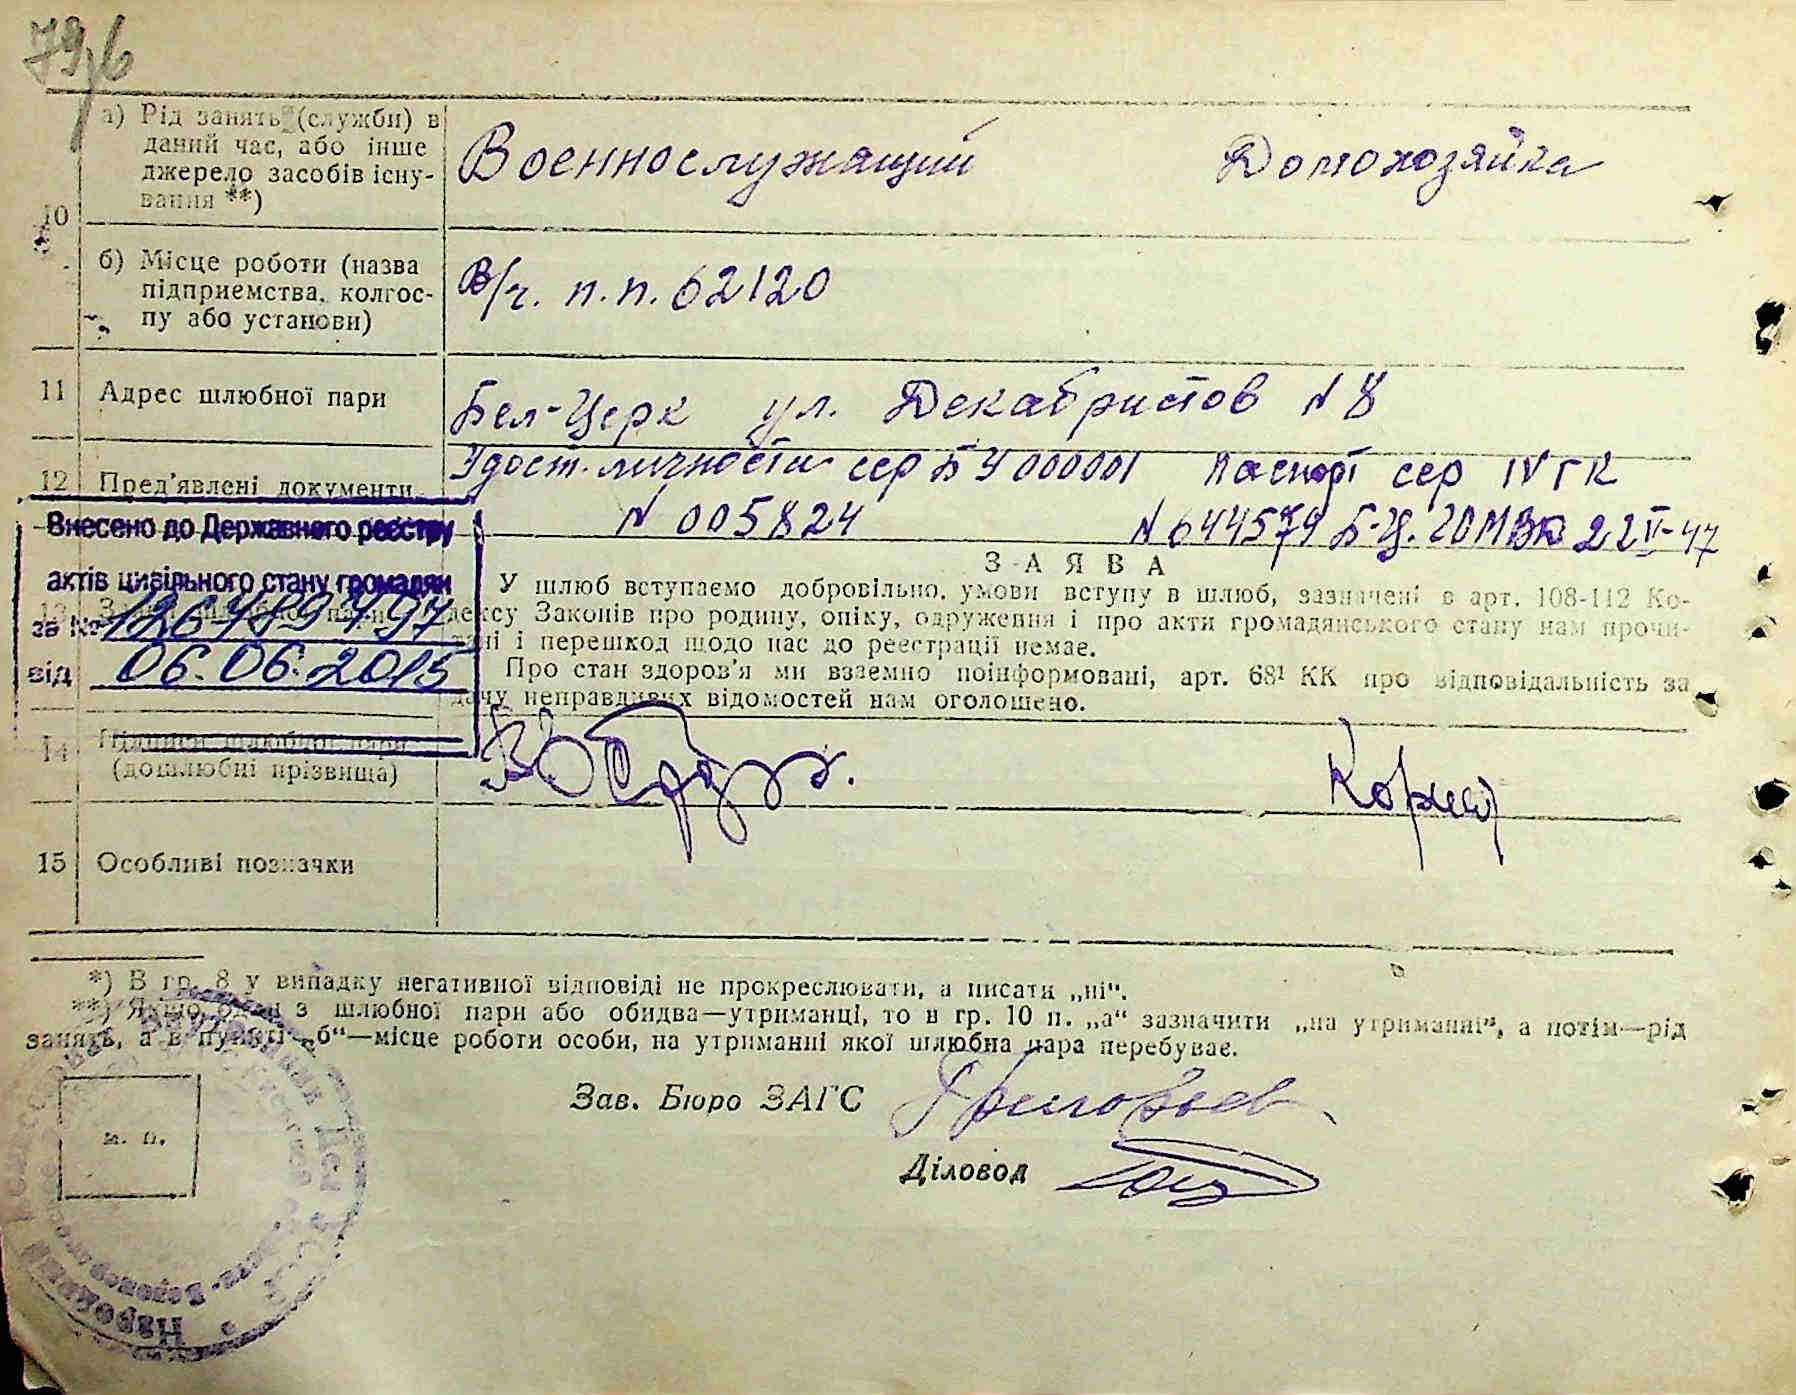 79б
а) Рід занять (служби) в
даний час, або інше
джерело засобів існу-
вання **)
Военнослужащий Домохозяйка
10
б) Місце роботи (назва
підприемства, колгос-
пу або установи)
В/ч. п.п. 62120
11 Адрес шлюбної пари
Бел-Церк ул. Декабристов N 8
12 Пред'явлені документи
Удост. личности сер БУ 000001 Паспорт сер IV ГК
N 005824 N 644579 Б-Ц. ГОМВД 22 II-47
Внесено до Державного реєстру
актів цивільного стану громадян
за № 1267894
від 06.06.2015
ЗАЯВА
У шлюб вступаємо добровільно, умови вступу в шлюб, зазначені в арт. 108-112 Ко-
дексу Законів про родину, опіку, одруження і про акти громадянського стану нам прочи-
тані і перешкод щодо нас до реестрації немає.
Про стан здоров'я ми взаємно поінформовані, арт. 68¹ КК про відповідальність за
дачу неправдивих відомостей нам оголошено.
14 Підписи шлюбної пари
(дошлюбні прізвища)
15 Особливі позначки
*) В гр. 8 у випадку негативної відповіді не прокреслювати, а писати „ні“.
**) Якщо один з шлюбної пари або обидва—утриманці, то в гр. 10 п. „а“ зазначити „на утриманні“, а потім—рід
занять, а в пункті „б“—місце роботи особи, на утриманні якої шлюбна пара перебуває.
Зав. Бюро ЗАГС
Діловод
м. п.